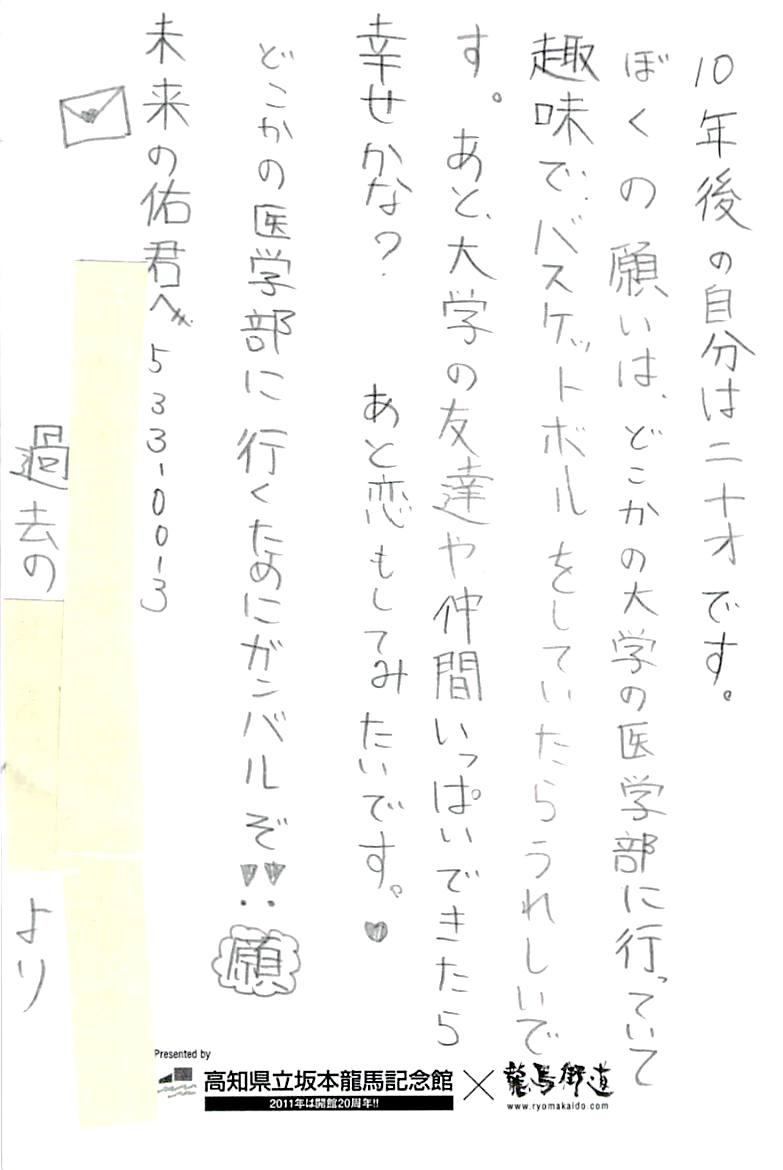 10年後の自分は二十才です。
ぼくの願いは、どこかの大学の医学部に行っていて
趣味で、バスケットボールをしていたらうれしいで
す。あと、大学の友達や仲間いっぱいできたら
幸せかな？　あと恋もしてみたいです。♥
どこかの医学部に行くためにガンバルぞ!! 願
未来の佑君へ 533-00-3
過去の　より
Presented by
高知県立坂本龍馬記念館×龍馬街道
2011年は開館20周年!!
www.ryomakaido.com